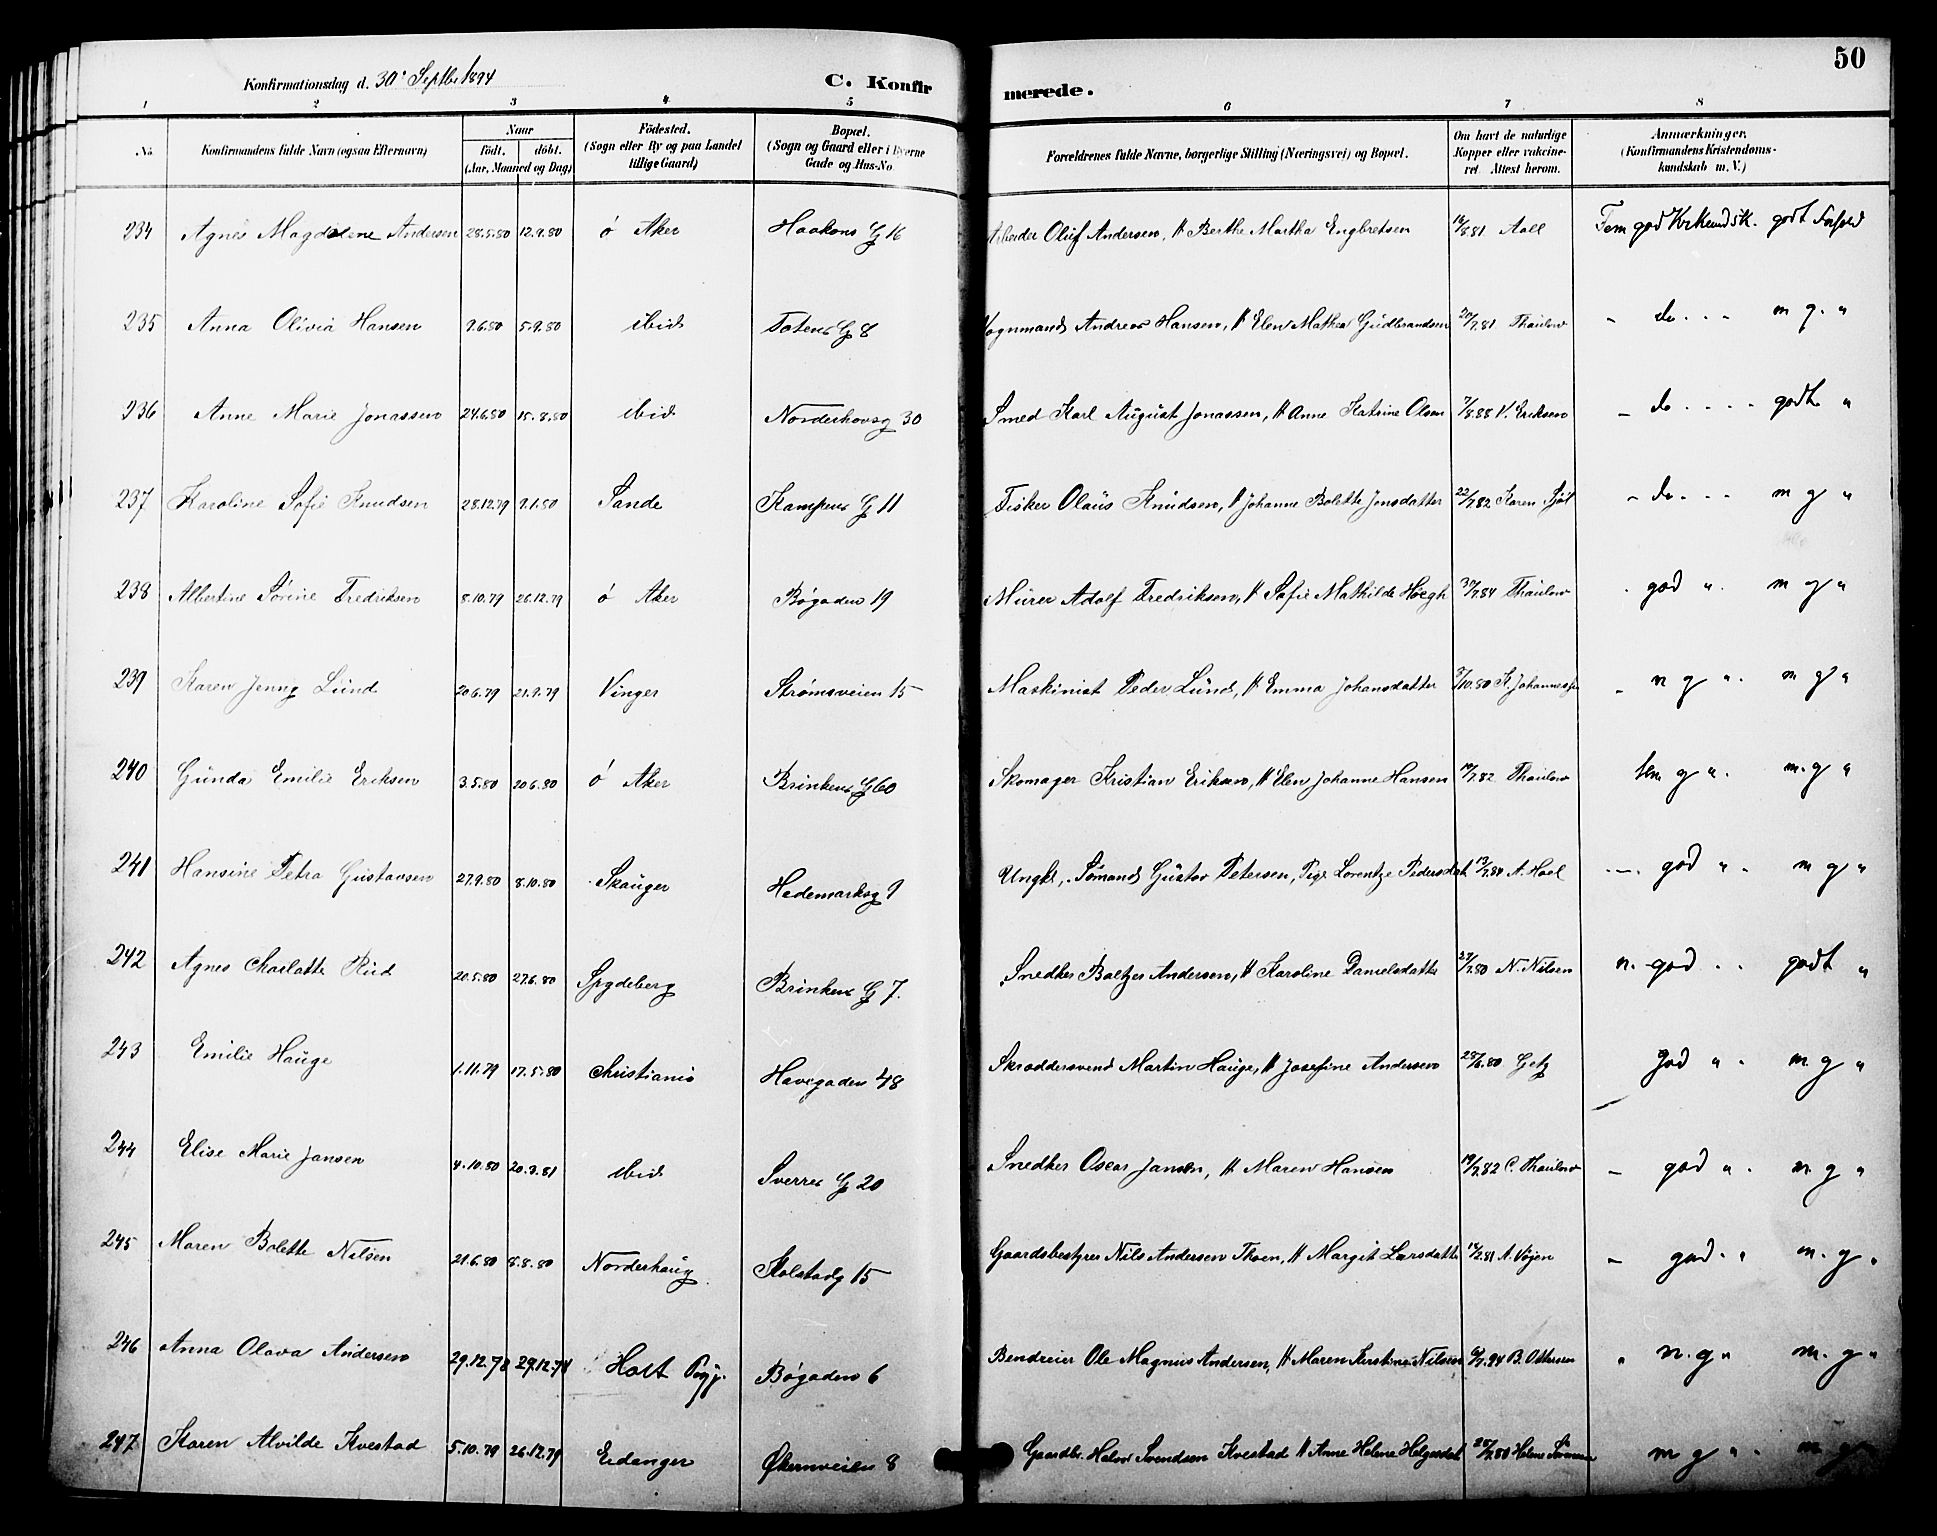 50
Konfirmationsdag d. 30' Septbr 1894
C. Konfirmerede.
1 2 3 4 5 6 7 8
No. Konfirmandens fulde Navn (ogsaa Efternavn) Naar födt. döbt. (Aar, Maaned og Dag) Födested. (Sogn eller By og paa Landet tillige Gaard) Bopæl. (Sogn og Gaard eller i Byerne Gade og Hus-No Forældrenes fulde Navne, borgerlige Stilling (Næringsvei) og Bopæl. Om havt de naturlige Kopper eller vakcineret. Attest herom. Anmærkninger. (Konfirmandens Kristendomskundskab m. V.)
234 Agnes Magdalene Andersen 28.5.80 12.9.80 Ø Aker Haakons G 16 Arbeider Oluf Andersen, H Berthe Martha Engbretsen 16/8.81 Aall Tem god Krkundsk. godt Forhold
235 Anna Olivia Hansen 9.6.80 5.9.80 ibid Totens G 8 Vognmand Andreas Hansen, H Elen Mathea Gudbrandsen 20/7.81 Thaulow - do . . . m g. "
236 Anne Marie Jonassen 24.6.80 15.8.80 ibid Norderhovsg 30 Smed Karl August Jonassen, H Anne Katrine Olsen 7/8.88 V. Eriksen - do . . . . godt "
237 Karoline Sofie Knudsen 28.12.79 9.1.80 Sande Kampens G 11 Fisker Olaus Knudsen, H Johanne Bolette Jonsdatter 22/7.82 Karen - do. . . m g "
238 Albertine Sorine Fredriksen 8.10.79 26.12.79 Ø Aker Bøgaden 19 Murer Adolf Fredriksen, H Sofie Mathilde Høegh 30/7.84 Thaulow . god " . m g "
239 Karen Jenny Lund 20.6.79 21.9.79 Vinger Strømsveien 15 Maskinist Peder Lund, H Emma Johansdatter 3/10.80 K. - n g " . m g "
240 Gunda Emilie Eriksen 3.5.80 20.6.80 Ø Aker Brinkens G 60 Skomager Kristian Eriksen, H Elen Johanne Hansen 19/7.82 Thaulow tem g " . m. g "
241 Hansine Petra Gustavsen 27.9.80 8.10.80 Skauger Hedemarksg 9 Ungkl., Sømand Gustav Petersen, Pige Lorentze Pedersdat 13/7.84 A. Hoel - . god " . m g "
242 Agnes Charlotte Rud 20.5.80 27.6.80 Spydeberg Brinkens G 7. Snedker Baltzer Andersen, H Karoline Danielsdatter 23/7.80 N. Nilsen n. god . . godt "
243 Emilie Hauge 1.11.79 17.5.80 Christiania Havegaden 48 Skræddersvend Martin Hauge, H Josefine Andersen 28/6.80 Getz god " . m. g "
244 Elise Marie Jansen 4.10.80 20.9.81 ibid Sverres G 20 Snedker Oscar Jansen, H Maren Hansen 19/7.82 C. Thaulow - god " . m. g "
245 Maren Bolette Nilsen 21.6.80 8.8.80 Norderhaug Kolstadg 15 Gaardsbestyrer Nils Andersen Thoen, H Margit Larsdatter A. Vøjen - god . " m. g "
246 Anna Olava Andersen 29.12.78 29.12.78 Holt Bøgaden 6 Ole Magnus Andersen, H Maren Kirstine Nilsen B. Ottersen " n. g " m. g "
247 Karen Alvilde Kvestad 5.10.79 26.12.79 Eidanger Økernveien 8 Gaardbr. Halvor Svendsen Kvestad H Anne Helene Helgesdat Helene m g " . m g